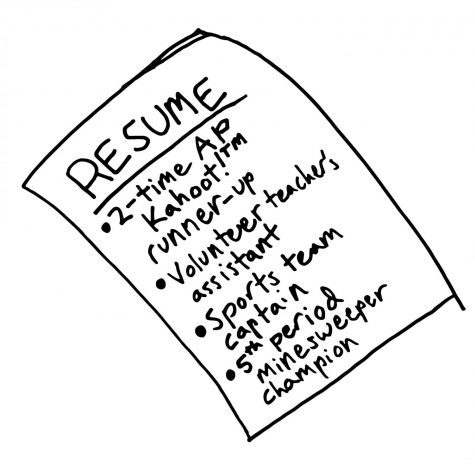 RESUME
• 2-time AP
Kahoot!™
runner-up
• Volunteer teacher's
assistant
• Sports team
captain
• 5th period
minesweeper
champion